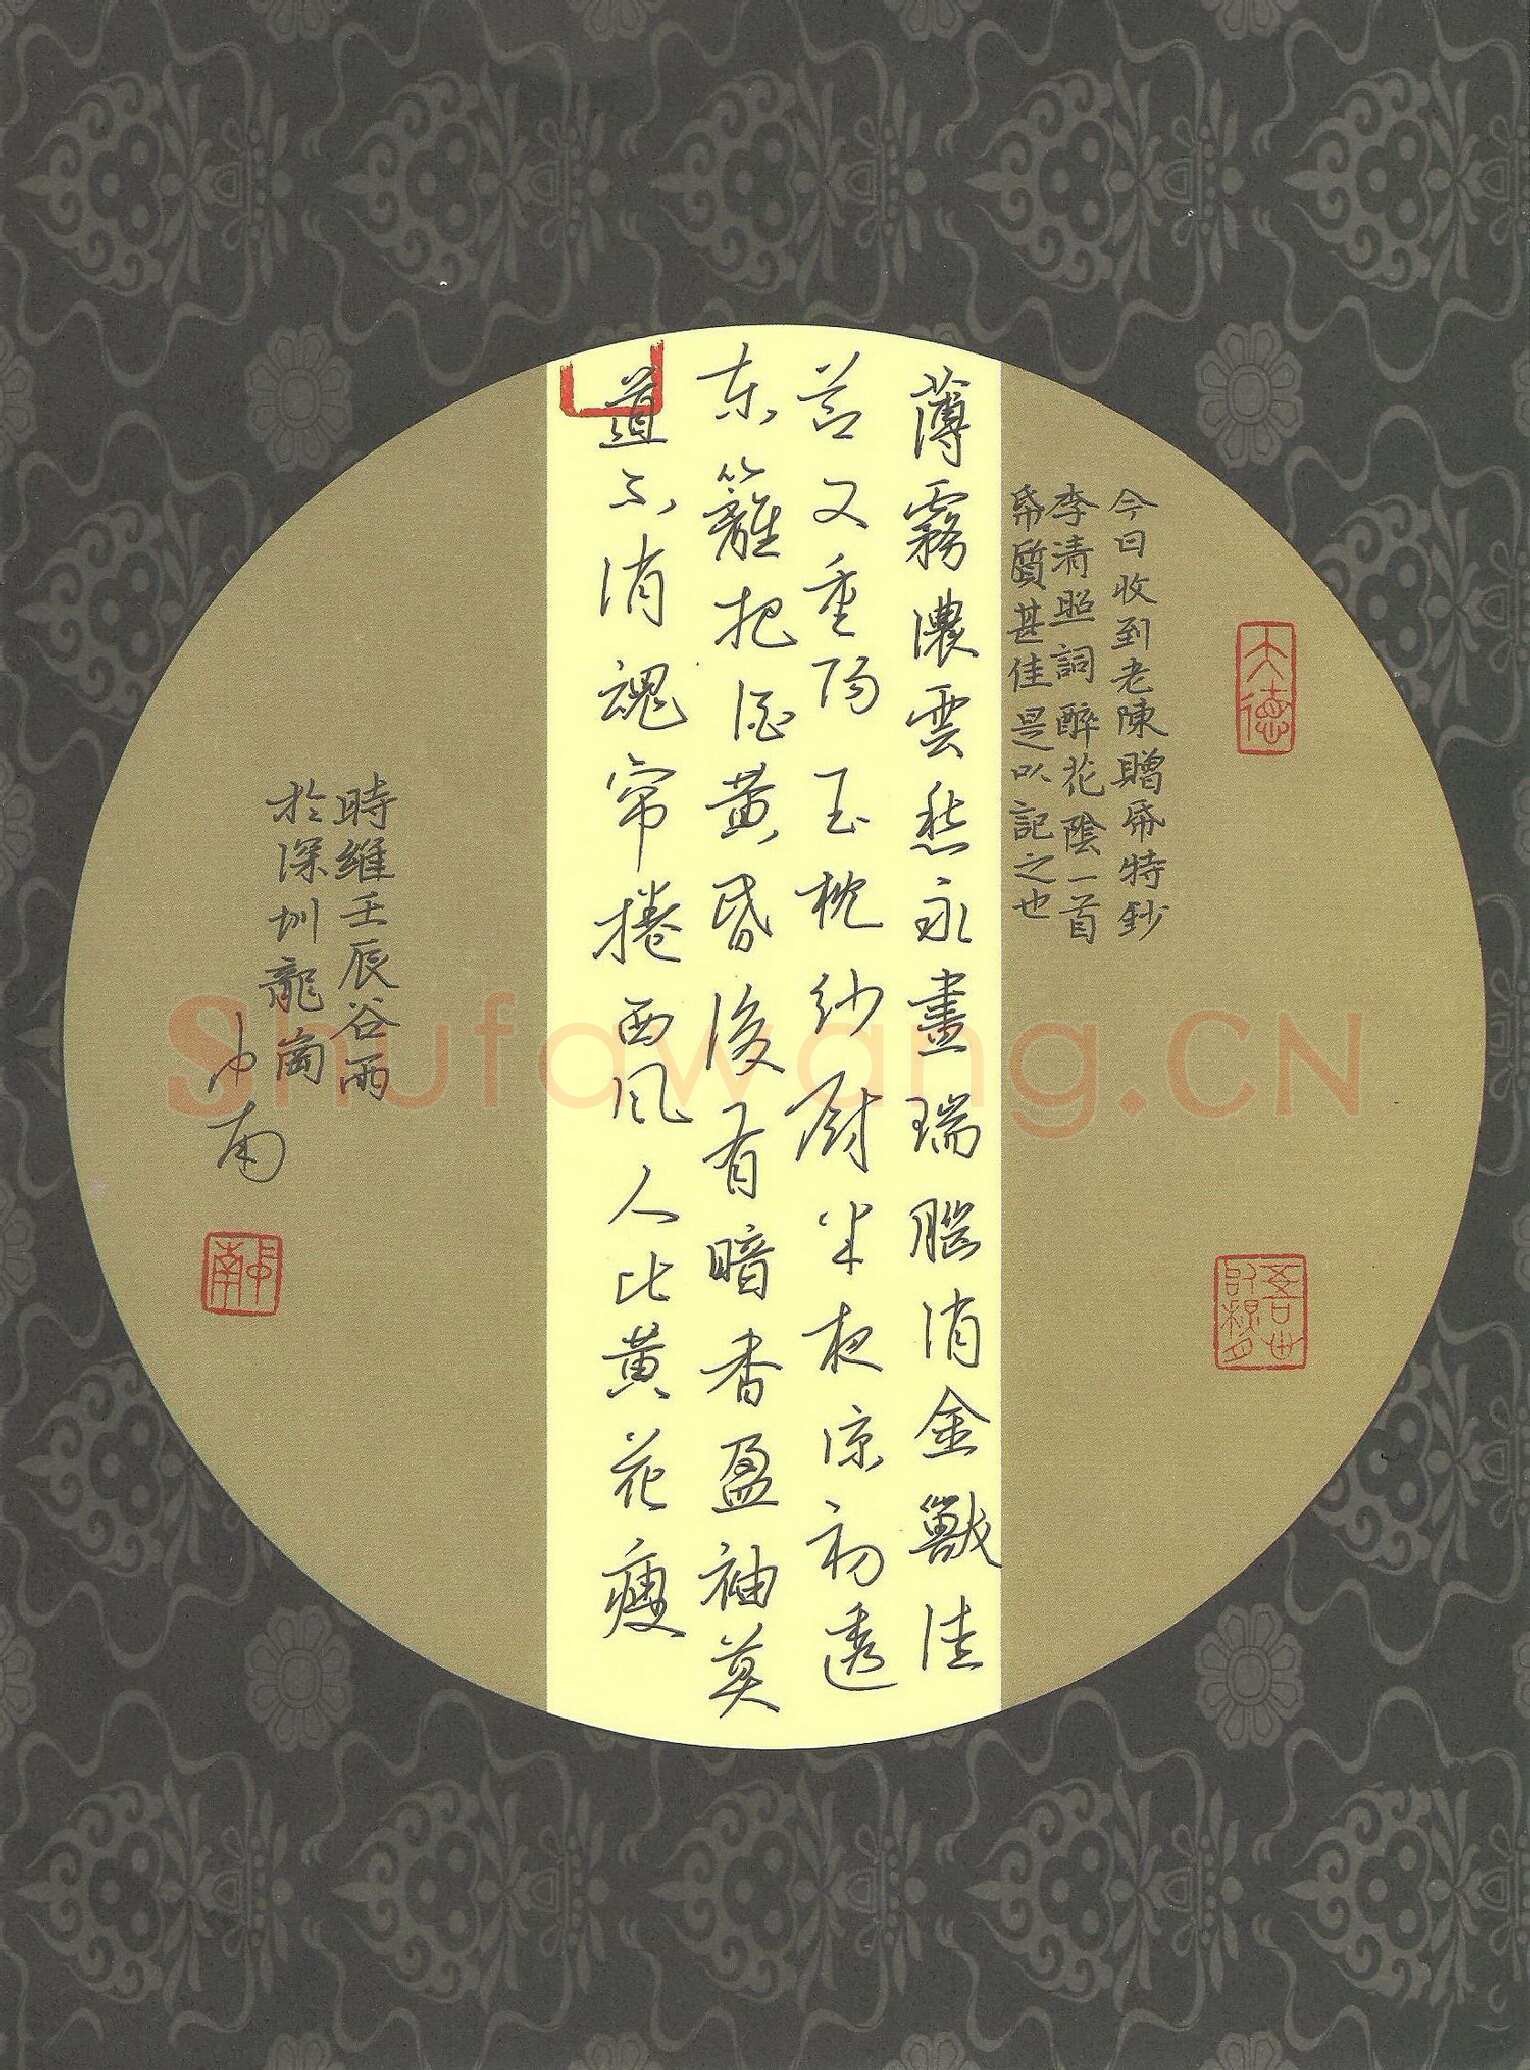 今日收到老陳贈帋特鈔
李清照詞醉花陰一首
帋質甚佳是以記之也
薄霧濃雲愁永晝瑞腦消金獸佳
莭又重陽玉枕紗厨半夜凉初透
东籬把酒黄昏後有暗香盈袖莫
道不消魂帘捲西风人比黄花瘦
時維壬辰谷雨
於深圳龍崗
Shufawang.CN